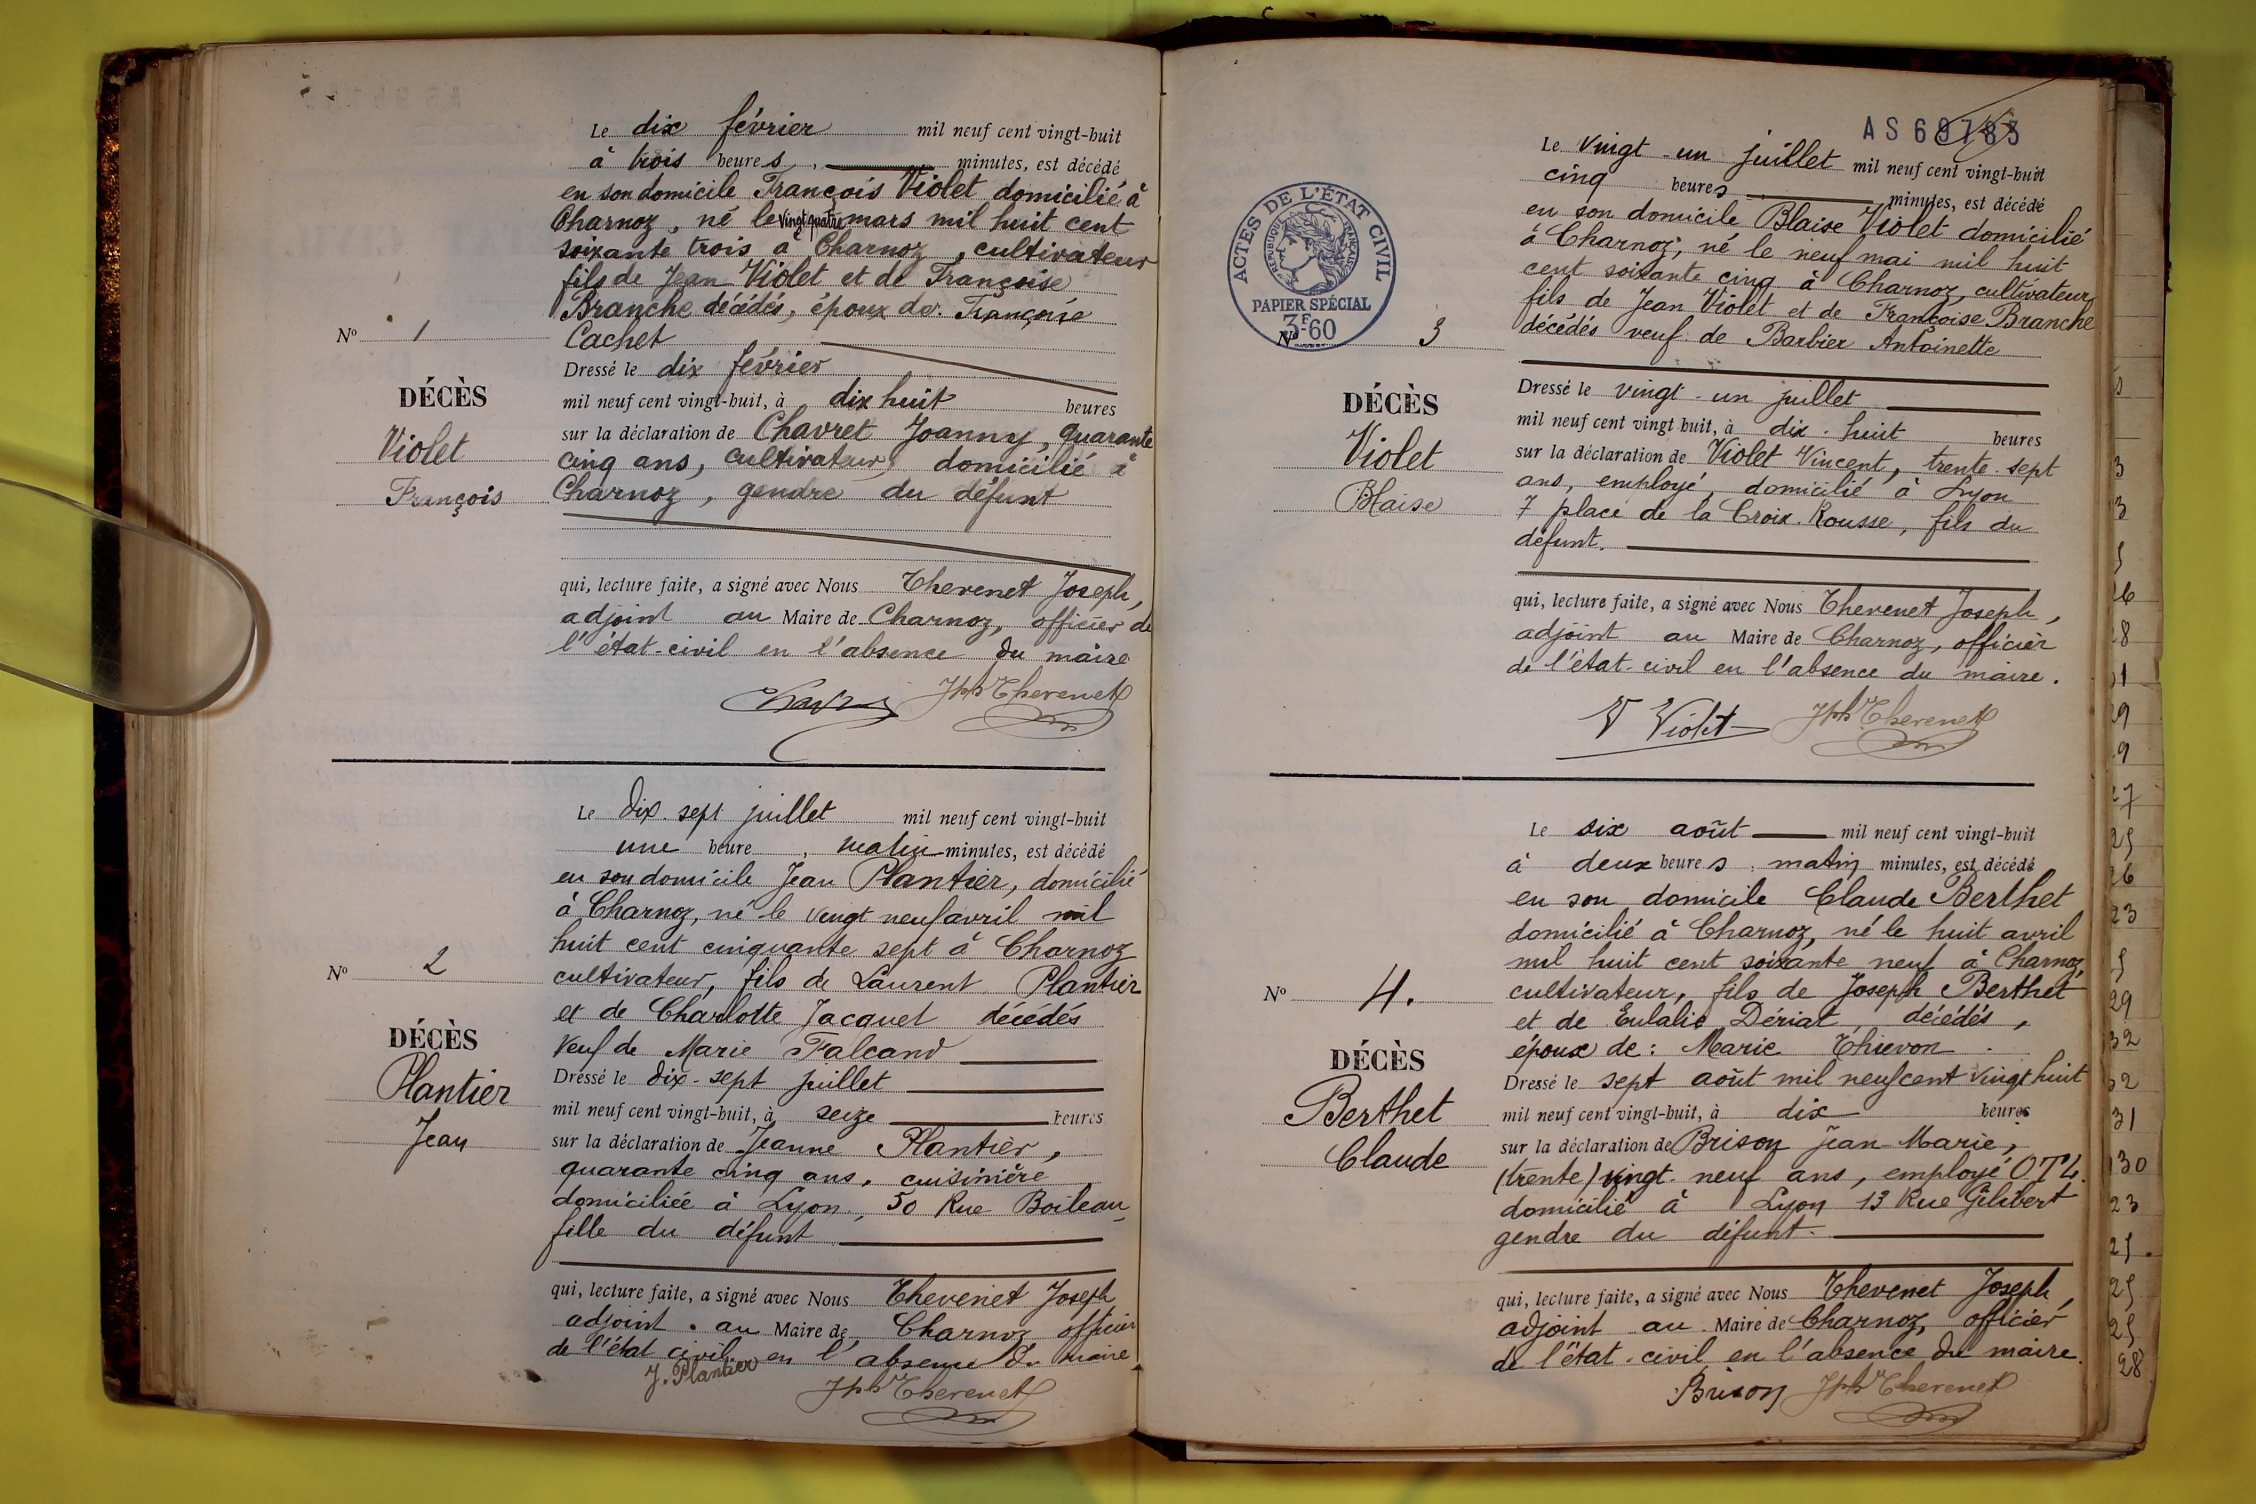 Le dix février mil neuf cent vingt-huit
à trois heures, minutes, est décédé
en son domicile François Violet domicilié à
Charnoz, né le vingt quatre mars mil huit cent
soixante trois à Charnoz, cultivateur
fils de Jean Violet et de Françoise
Branche décédés, époux de Françoise
Cachet
Nº 1
Dressé le dix février
DÉCÈS
mil neuf cent vingt-huit, à dix huit heures
Violet
sur la déclaration de Chavret Joanny, quarante
cinq ans, cultivateur, domicilié à
François
Charnoz, gendre du défunt
qui, lecture faite, a signé avec Nous Thevenet Joseph,
adjoint au Maire de Charnoz, officier de
l'état-civil en l'absence du maire
Jph Thevenet
Le dix-sept juillet mil neuf cent vingt-huit
une heure, matin minutes, est décédé
en son domicile Jean Plantier, domicilié
à Charnoz, né le vingt neuf avril mil
huit cent cinquante sept à Charnoz
Nº 2
cultivateur, fils de Laurent Plantier
et de Charlotte Jacquet décédés
DÉCÈS
veuf de Marie Falcand
Plantier
Dressé le dix-sept juillet
mil neuf cent vingt-huit, à seize heures
Jean
sur la déclaration de Jeanne Plantier,
quarante cinq ans, cuisinière
domiciliée à Lyon, 50 Rue Boileau,
fille du défunt
qui, lecture faite, a signé avec Nous Thevenet Joseph
adjoint au Maire de Charnoz officier
de l'état civil en l'absence du maire
J. Plantier
Jph Thevenet
AS 69783
Le vingt-un juillet mil neuf cent vingt-huit
cinq heures minutes, est décédé
en son domicile Blaise Violet domicilié
à Charnoz, né le neuf mai mil huit
cent soixante cinq à Charnoz, cultivateur,
fils de Jean Violet et de Françoise Branche
décédés veuf de Barbier Antoinette
ACTES DE L'ÉTAT CIVIL
RÉPUBLIQUE FRANÇAISE
PAPIER SPÉCIAL
3F60
Nº 3
DÉCÈS
Dressé le vingt-un juillet
mil neuf cent vingt huit, à dix-huit heures
Violet
sur la déclaration de Violet Vincent, trente-sept
ans, employé, domicilié à Lyon
Blaise
7 place de la Croix-Rousse, fils du
défunt.
qui, lecture faite, a signé avec Nous Thevenet Joseph,
adjoint au Maire de Charnoz, officier
de l'état-civil en l'absence du maire.
V Violet Jph Thevenet
Le six août mil neuf cent vingt-huit
à deux heures, matin minutes, est décédé
en son domicile Claude Berthet
domicilié à Charnoz, né le huit avril
mil huit cent soixante neuf à Charnoz,
Nº 4.
cultivateur, fils de Joseph Berthet
et de Eulalie Dériat, décédés,
époux de : Marie Thievon
DÉCÈS
Dressé le sept août mil neuf cent vingt huit
Berthet
mil neuf cent vingt-huit, à dix heures
Claude
sur la déclaration de Brison Jean-Marie,
(trente) vingt-neuf ans, employé OTL.
domicilié à Lyon 13 Rue Gilibert
gendre du défunt.
qui, lecture faite, a signé avec Nous Thevenet Joseph,
adjoint au Maire de Charnoz, officier
de l'état-civil en l'absence du maire.
Brison Jph Thevenet